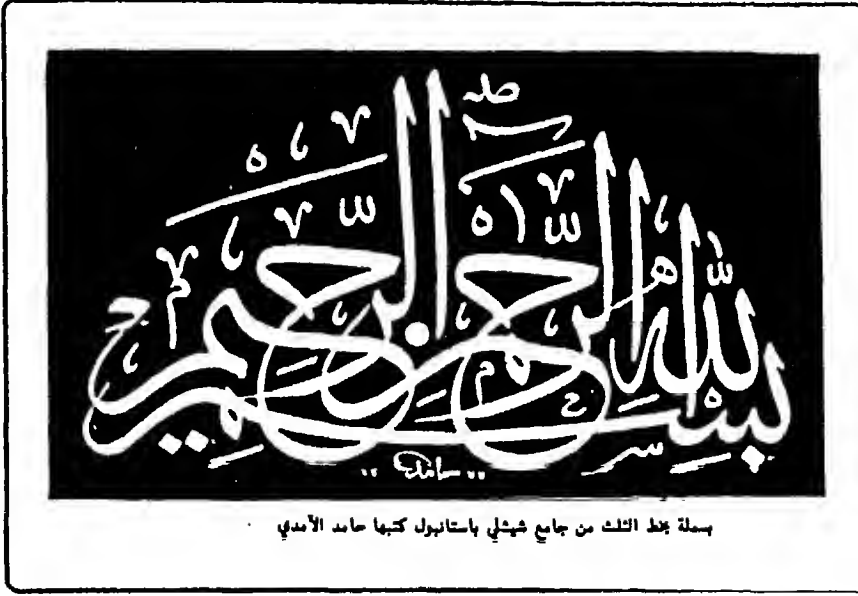 بسم الله الرحمن الرحيم
حامد
بسملة بخط الثلث من جامع شيشلي باستانبول كتبها حامد الآمدي